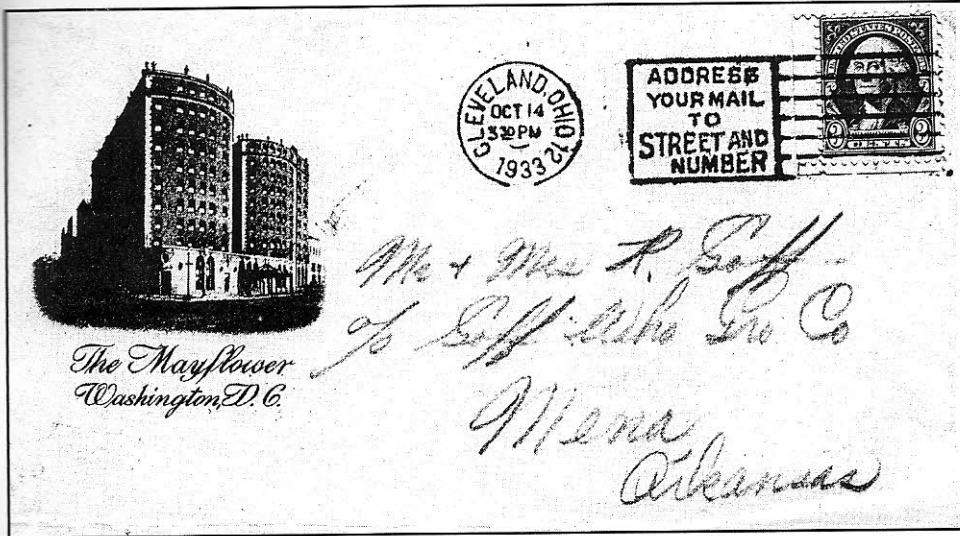 CLEVELAND, OHIO 12
OCT 14
3 30 PM
1933
ADDRESS
YOUR MAIL
TO
STREET AND
NUMBER
UNITED STATES POSTAGE
2 CENTS 2
The Mayflower
Washington, D.C.
Mr + Mrs R. Goff
c/o Goff Gro Co
Mena
Arkansas